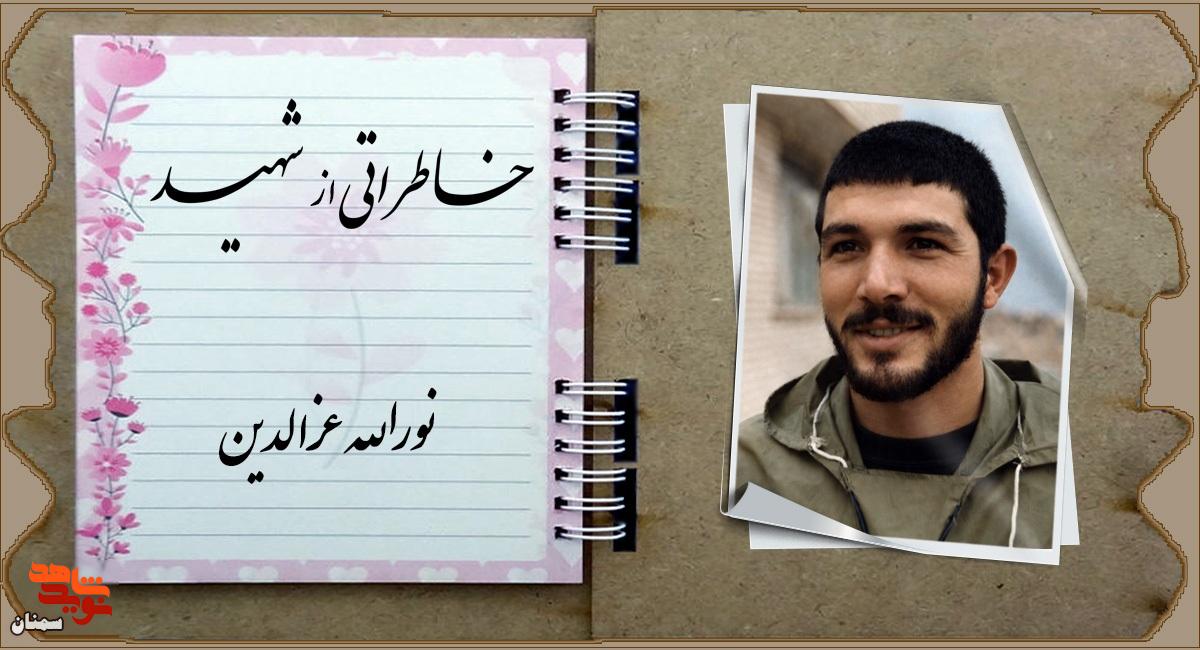 خاطراتی از شهید
نورالله عزالدین
نوید شاهد
سمنان